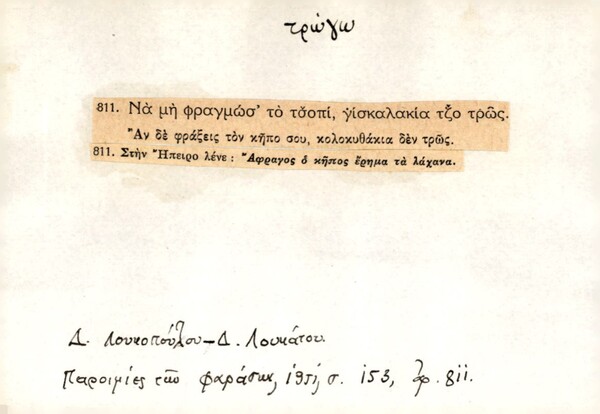 τρώγω
811. Νὰ μὴ φραγμώσ' τὸ τσ̌οπί, γ̇ισκαλακία τζ̌ο τρῶς.
Ἂν δὲ φράξεις τὸν κῆπο σου, κολοκυθάκια δὲν τρῶς.
811. Στὴν Ἤπειρο λένε: Ἄφραγος ὁ κῆπος ἔρημα τὰ λάχανα.
Δ. Λουκοπούλου - Δ. Λουκάτου.
Παροιμίες τῶν Φαράσων, 1951, σ. 153, ἀρ. 811.